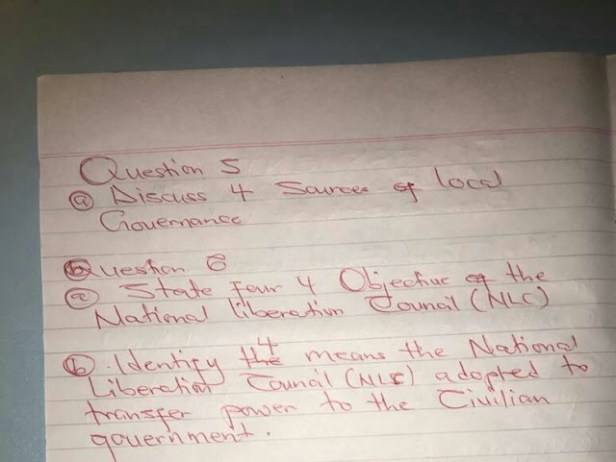 Question 5
(a) Discuss 4 Sources of local
Governance
Question 6
(a) State Four 4 Objective of the
National liberation Council (NLC)
(b). Identify 4 means the National
Liberation Council (NLC) adopted to
transfer power to the Civilian
government.